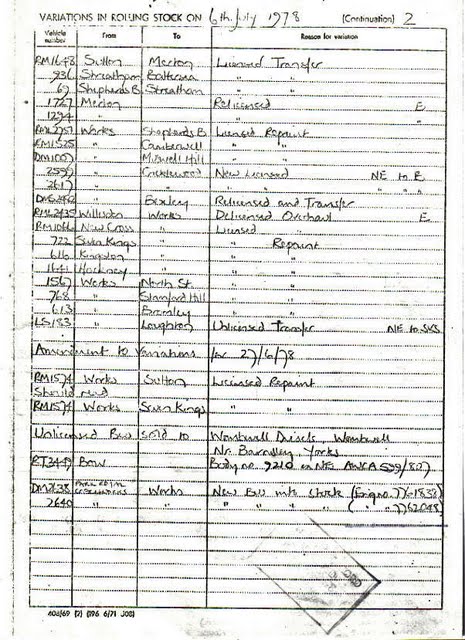 VARIATIONS IN ROLLING STOCK ON 6th. July 1978 (Continuation) 2
Vehicle number From To Reason for variation
RM1648 Sutton Merton Licensed Transfer
936 Streatham Battersea " "
69 Shepherds B Streatham " "
1727 Merton Relicensed E
1294 " " "
RML2757 Works Shepherds B Licensed Repaint
RM1525 " Camberwell " "
DM1007 " Muswell Hill " "
2599 " Cricklewood New Licensed NE to E
2617 " " " " " " "
" Bexley Relicensed and Transfer
RML2435 Willesden Works Delicensed Overhaul E
RM1066 New Cross " Licensed "
722 Seven Kings " " Repaint
616 Kingston " " "
1641 Hackney " " "
1567 Works North St. " "
768 " Stamford Hill " "
613 " Bromley " "
LS183 " Loughton Unlicensed Transfer NE to SVS
Amendment to Variations for 27/6/78
RM1574 Works Sutton Licensed Repaint
Should read
RM1574 Works Seven Kings " "
Unlicensed Bus sold to Wombwell Diesels, Wombwell
Nr. Barnsley Yorks
RT3449 Bow Body no. 9210
DM2638 Works New Bus into Stock
2640 " " "
408/69 (7) (896 6/71 JOB)